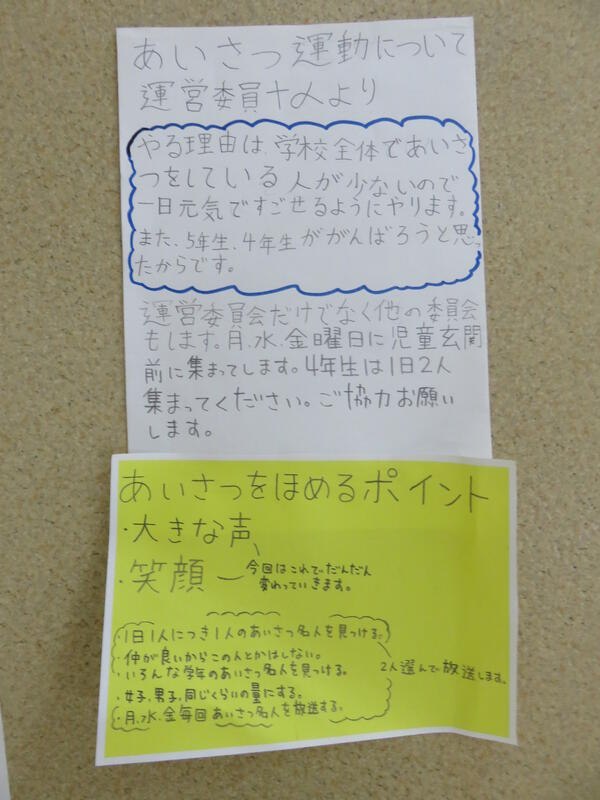 あいさつ運動について
運営委員十人より
やる理由は、学校全体であいさ
つをしている人が少ないので
一日元気ですごせるようにやります。
また、5年生、4年生ががんばろうと思っ
たからです。
運営委員会だけでなく他の委員会
もします。月、水、金曜日に児童玄関
前に集まってします。4年生は1日2人
集まってください。ご協力お願い
します。
あいさつをほめるポイント
・大きな声、
・笑顔 ー今回はこれでだんだん
変わっていきます。
・1日1人につき1人のあいさつ名人を見つける。
・仲が良いからこの人とかはしない。
・いろんな学年のあいさつ名人を見つける。
2人選んで放送します。
・女子、男子、同じくらいの量にする。
・月、水、金毎回あいさつ名人を放送する。